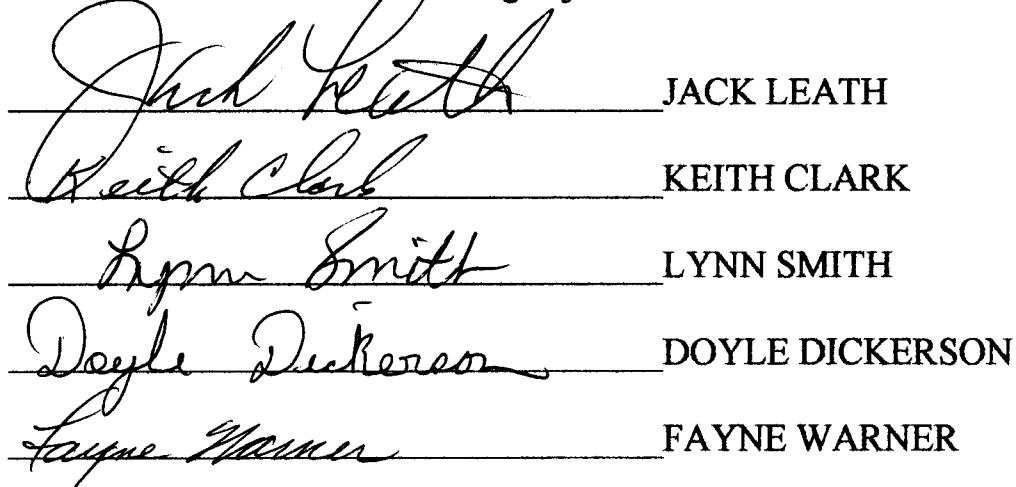 Jack Leath JACK LEATH
Keith Clark KEITH CLARK
Lynn Smith LYNN SMITH
Doyle Dickerson DOYLE DICKERSON
Fayne Warner FAYNE WARNER